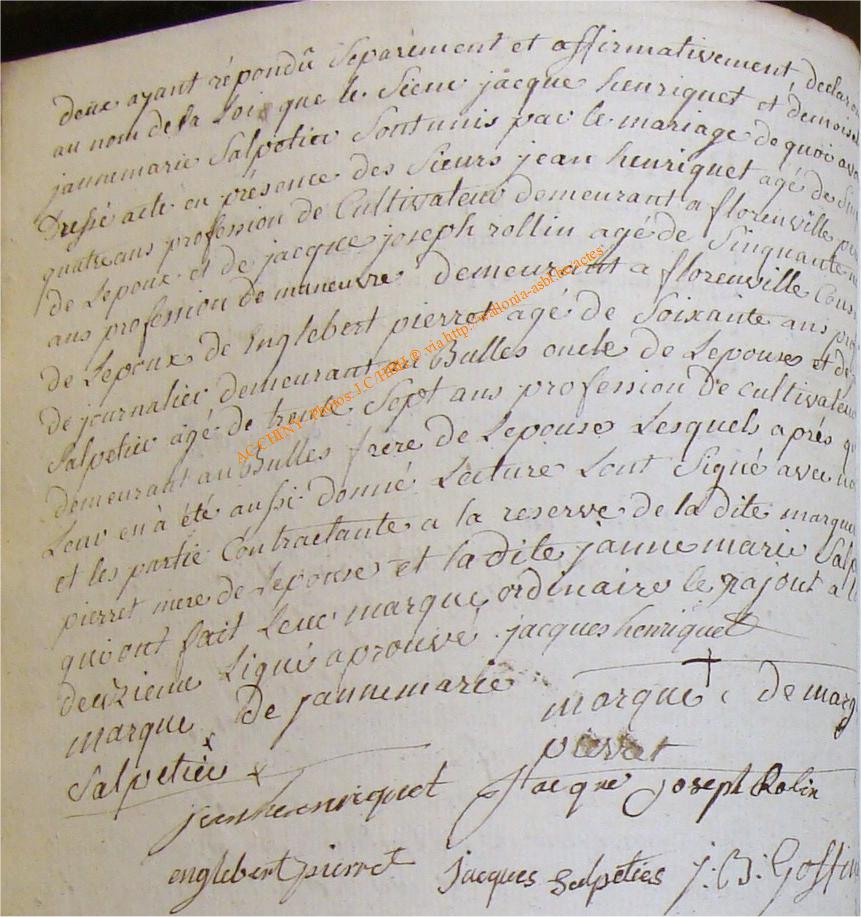 deux ayant répondû Separément et affirmativement, declare
au nom de la Loi que le Sieur jacque henriquet et demoise
jannemarie Salpetier Sont unis par le mariage de quoi avo
Dressé acte en présence des Sieurs jean henriquet agé de
quatre ans profession de Cultivateur demeurant a florenville
de Lepoux et de jacque joseph rollin agé de Sinquante
ans profession de maneuvre demeurant a florenville Cous
de Lepoux de Englebert pierret agé de Soixante ans pro
de journalier demeurant au Bulles oncle de Lepouse et de
Salpetier agé de trente Sept ans profession de cultivateur
demeurant au Bulles frere de Lepouse Lesquels après q
Leur en à été aussi donné Lecture Lont Signé avec no
et les partie Contractante a la reserve de la dite margue
pierret mere de Lepouse et la dite jannemarie Salp
qui ont fait Leur marque ordinaire le rajout a l
deuzieme Ligne aprouvé . jacques henriquet
marque de jannemarie
Salpetier
marque de marg
pierret
jean henricquet
Jacque joseph Rolin
englebert pierret
jacques Salpeties
j: B: Goffin
ACCHINY Photos J.C. ® via http://wallonia-asbl.be/actes